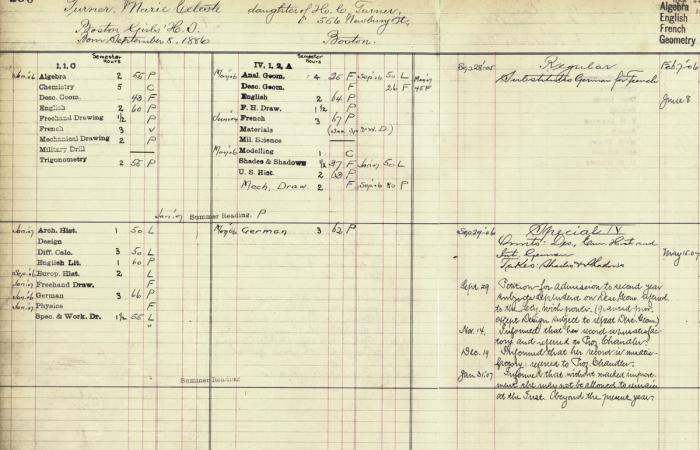 Turner, Marie Celeste daughter of H. C. Turner,
556 Newbury St,
Boston Girls' H.S.
Born September 8, 1886 Boston.
Algebra
English
French
Geometry
I, 1, C
Semester Hours
Jan 06 Algebra 2 55 P
Chemistry 5 C
Desc. Geom. 43 F
English 2 60 P
Freehand Drawing 1/2 P
French 3 V
Mechanical Drawing 2 P
Military Drill —
Trigonometry 2 55 P
IV, 1, 2, A
Semester Hours
May 06 Anal. Geom. 4 25 F Sep 06 50 L May 07
Desc. Geom. F 26 F 45 F
English 2 64 P
F. H. Draw. 1 1/2 P
French 3 67 P
Materials
Mil. Science —
May 06 Modelling 1 C
Shades & Shadows 1/2 37 F Jan 07 50 L
U. S. Hist. 2 63 P
Mech. Draw. 2 F Sep 06 80 P
Jan '07 Summer Reading. P
Sep 28 '05 Regular Feb 7 '06
Substitutes German for French
June 8
Jan 07 Arch. Hist. 1 50 L
Design
Diff. Calc. 3 50 L
English Lit. 1 60 P
Europ. Hist. 2 L
Jan 07 Freehand Draw. F
Jan 06 German 3 66 P
Jan 07 Physics F
Spec. & Work. Dr. 1 1/2 55 L
"
May 06 German 3 62 P
Summer Reading
Sep 29 '06 Special IV
Omits: Des, Eur. Hist. and
Int. German May 15.07
Takes: Shades & Shadows
Sept. 29 Petition for admission to second year
subjects dependent on Desc. Geom. referred
to the Secy. with power. (Granted prov.
except Design subject to repeat Desc. Geom.)
Nov. 14. Informed that her record is unsatisfac-
tory and referred to Prof. Chandler.
Dec. 19 Informed that her record is unsatis-
factory: referred to Prof. Chandler.
Jan 31.07 Informed that without marked improve-
ment she may not be allowed to remain
at the Inst. beyond the present year.